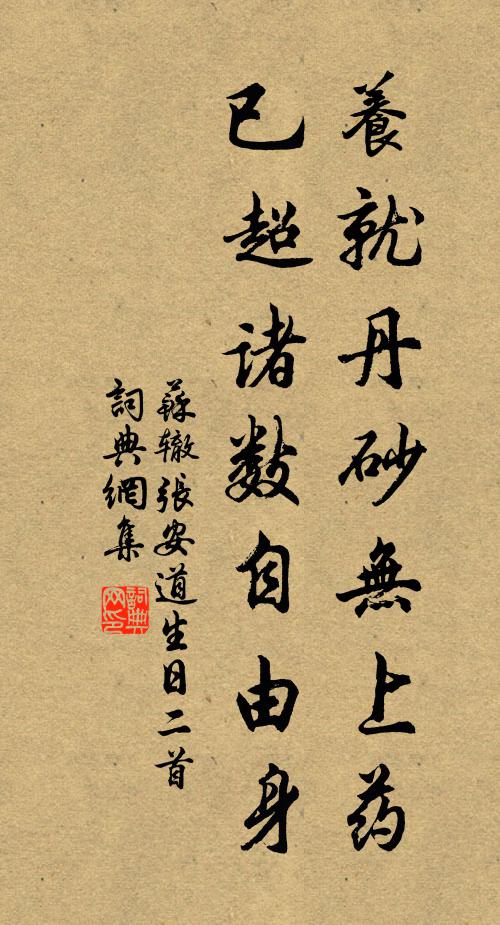 養就丹砂無上药
已超诸数自由身
蘇辙張安道生日二首
詞典網集
詞典网印